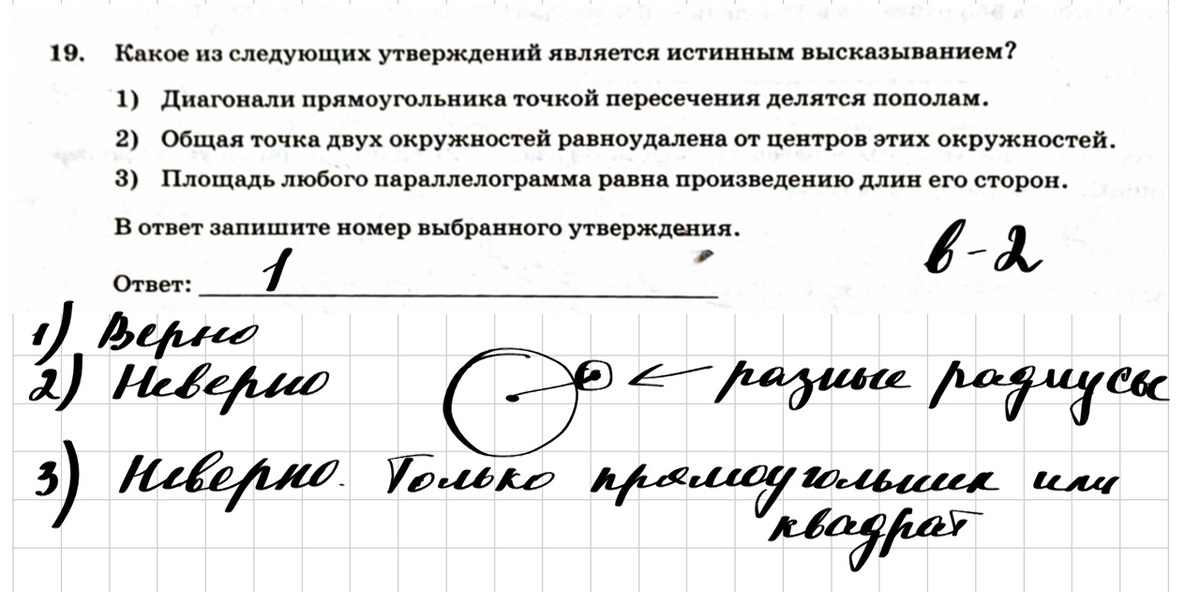 19. Какое из следующих утверждений является истинным высказыванием?
1) Диагонали прямоугольника точкой пересечения делятся пополам.
2) Общая точка двух окружностей равноудалена от центров этих окружностей.
3) Площадь любого параллелограмма равна произведению длин его сторон.
В ответ запишите номер выбранного утверждения.
в-2
Ответ: 1
1) Верно
2) Неверно ← разные радиусы
3) Неверно. Только прямоугольник или
квадрат